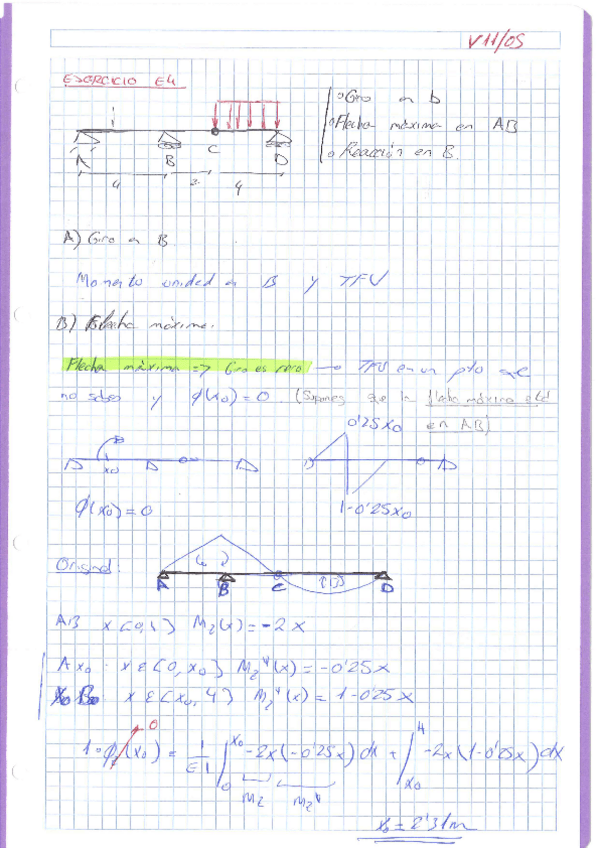 V11/05
EJERCICIO E4
• Giro en b
• Flecha máxima en AB
• Reacción en B.
A B C D
4 2 4
A) Giro en B
Momento unidad en B y TFV
B) Flecha máxima.
Flecha máxima => Giro es cero → TFV en un pto que
no sabes y φ(x0) = 0. (Supones que la flecha máxima está
en AB)
x0
0'25x0
1-0'25x0
φ(x0) = 0
Original:
A B C D
AB x Mz(x) = -2x
Ax0 x ∈ [0, x0} Mzᵛ(x) = -0'25x
x0 B x ∈ [x0, 4} Mzᵛ(x) = 1-0'25x
1·φ(x0) = 1/EI ∫0^x0 -2x(-0'25x)dx + ∫x0^4 -2x(1-0'25x)dx
0
Mz Mzᵛ
x0 = 2'31m